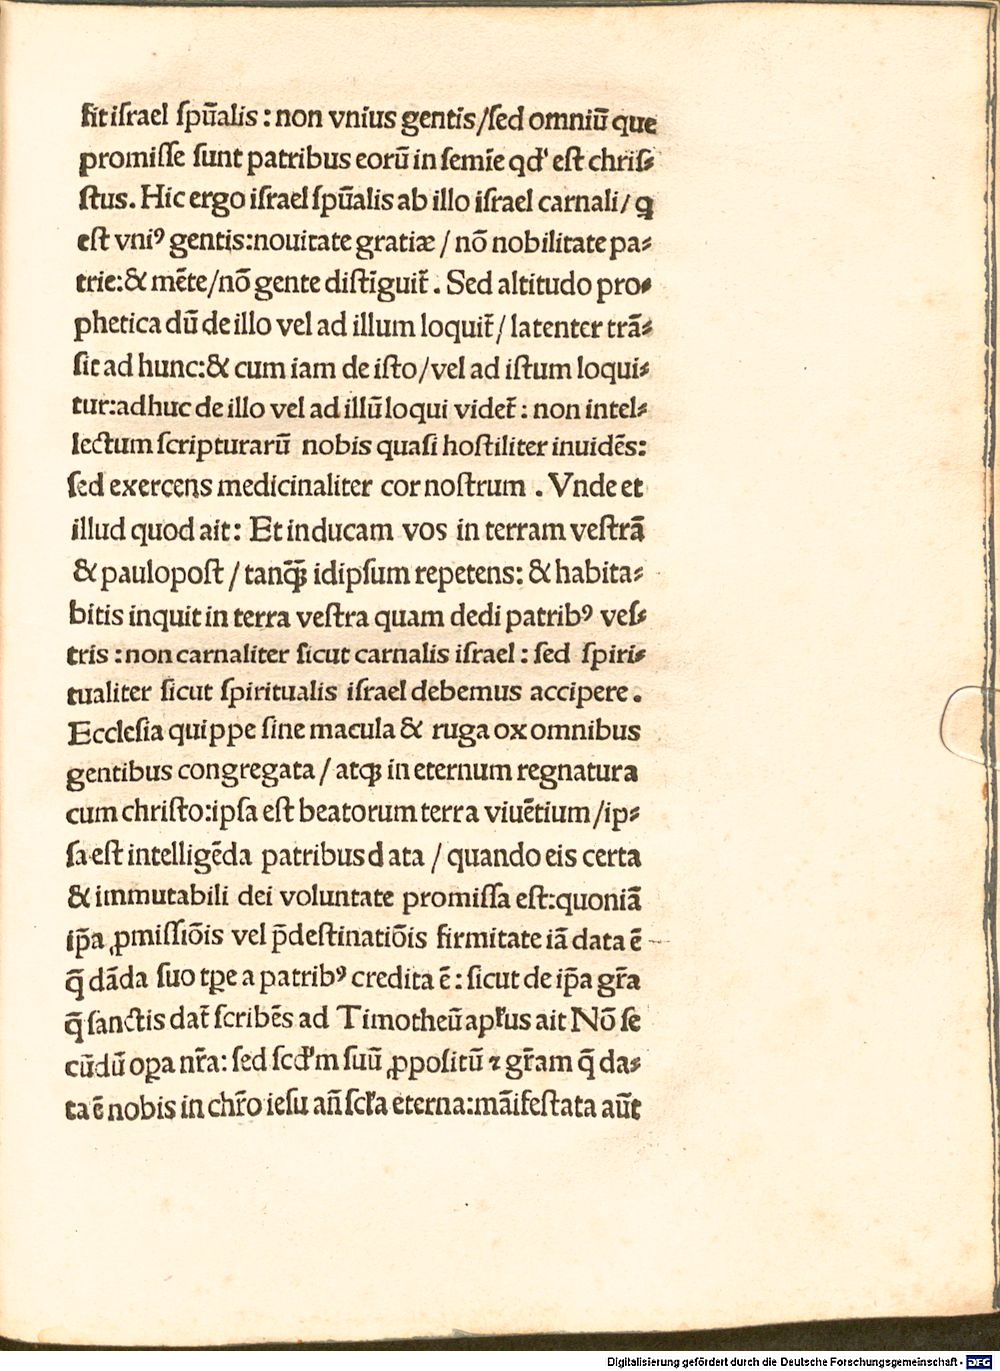 ſit iſrael ſpūalis : non vnius gentis/ſed omniū que
promiſſe ſunt patribus eorū in ſemīe qd' eſt chriſ⸗
ſtus. Hic ergo iſrael ſpūalis ab illo iſrael carnali/ q
eſt vniꝰ gentis:nouitate gratiæ / nō nobilitate pa⸗
trie:& mēte/nō gente diſtīguit̄ . Sed altitudo pro⸗
phetica dū de illo vel ad illum loquit̄ / latenter trā⸗
ſit ad hunc:& cum iam de iſto/vel ad iſtum loqui⸗
tur:adhuc de illo vel ad illū loqui videt̄ : non intel⸗
lectum ſcripturarū nobis quaſi hoſtiliter inuidēs:
ſed exercens medicinaliter cor noſtrum . Vnde et
illud quod ait: Et inducam vos in terram veſtrā
& paulopoſt / tanq̄ꝫ idipſum repetens: & habita⸗
bitis inquit in terra veſtra quam dedi patribꝰ veſ⸗
tris : non carnaliter ſicut carnalis iſrael : ſed ſpiri⸗
tualiter ſicut ſpiritualis iſrael debemus accipere .
Eccleſia quippe ſine macula & ruga ox omnibus
gentibus congregata / atqꝫ in eternum regnatura
cum chriſto:ipſa eſt beatorum terra viuētium /ip⸗
ſa eſt intelligēda patribus d ata / quando eis certa
& immutabili dei voluntate promiſſa eſt:quoniā
ip̄a ꝓmiſſiōis vel p̄deſtinatiōis firmitate iā data ē
q̄ dāda ſuo tꝑe a patribꝰ credita ē : ſicut de ip̄a gr̄a
q̄ ſanctis dat̄ ſcribēs ad Timotheū apl'us ait Nō ſe
cūdū oꝑa nr̄a: ſed ſcd'm ſuū ꝓpoſitū ꝛ gr̄am q̄ da⸗
ta ē nobis in chr̄o ieſu an̄ ſcl'a eterna:māifeſtata aūt
Digitalisierung gefördert durch die Deutsche Forschungsgemeinschaft - DFG